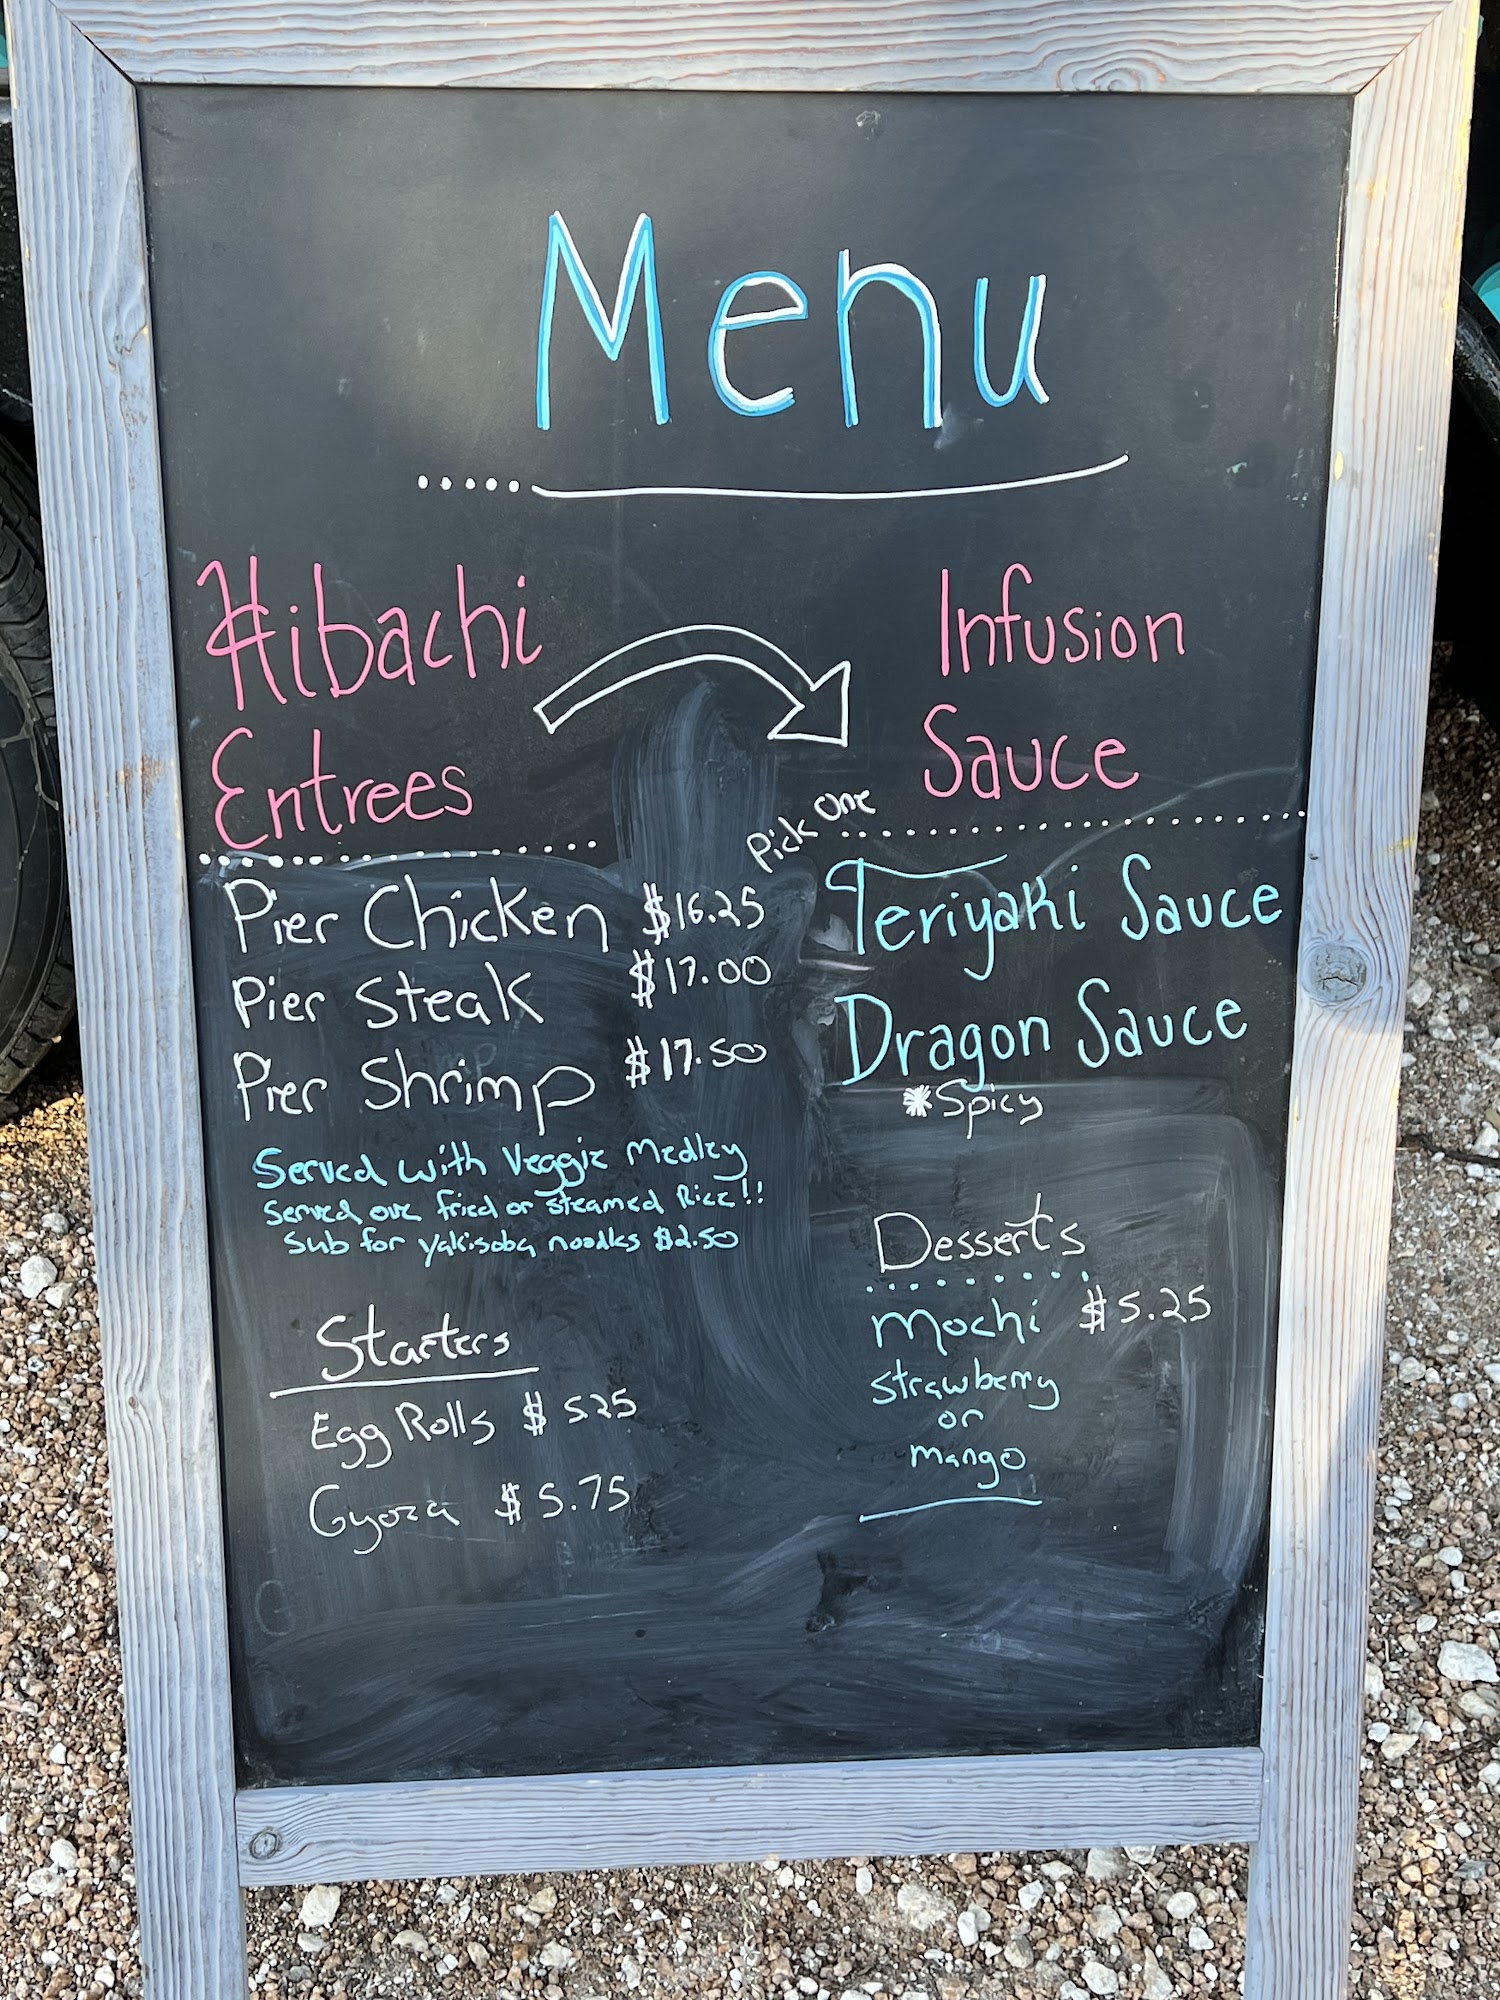 Menu
Hibachi
Entrees
Pier Chicken $16.25
Pier Steak $17.00
Pier Shrimp $17.50
Served with Veggie Medley
Served over fried or steamed Rice!!
Sub for yakisoba noodles $2.50
Starters
Egg Rolls $ 525
Gyoza $ 5.75
Pick One
Infusion
Sauce
Teriyaki Sauce
Dragon Sauce
*Spicy
Desserts
Mochi $5.25
Strawberry
or
mango